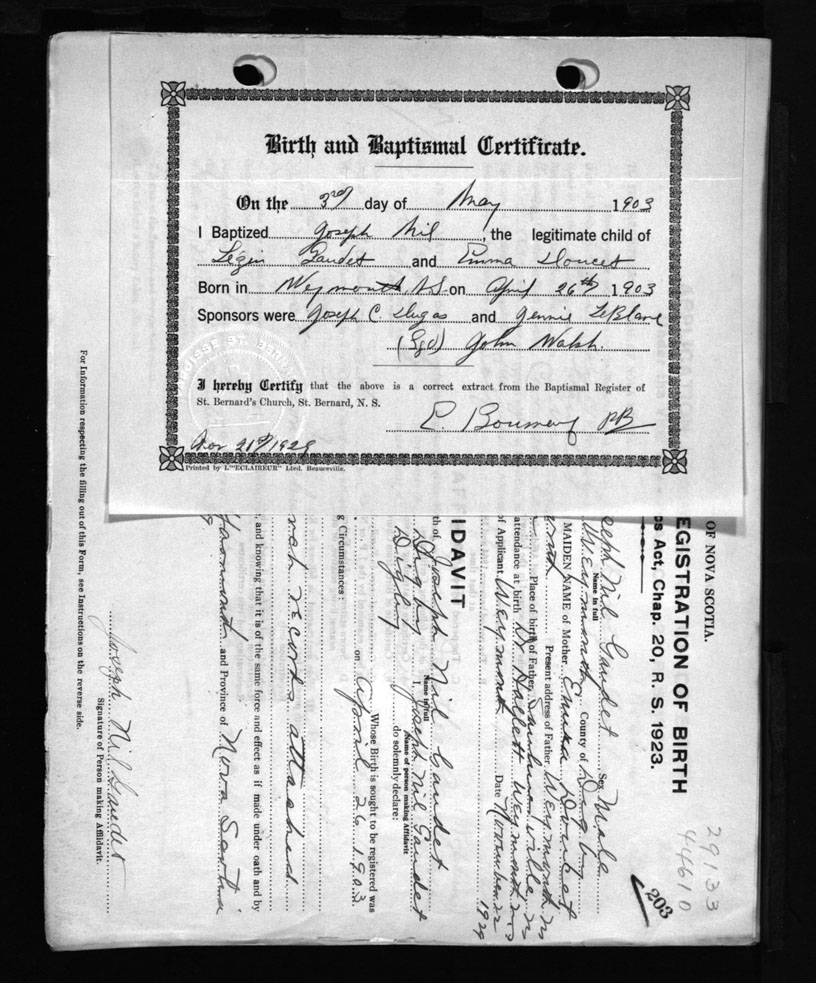 Birth and Baptismal Certificate.
On the 3rd day of May 1903
I Baptized Joseph Nil, the legitimate child of
Lézin Gaudet and Emma Doucet
Born in Weymouth, N.S. on April 26th 1903
Sponsors were Joseph C. Dugas and Jennie LeBlanc
(Sgd) John Walsh.
I hereby Certify that the above is a correct extract from the Baptismal Register of
St. Bernard's Church, St. Bernard, N. S.
P.P.
Nov 21st/1929
Printed by L'"ECLAIREUR" Ltd. Beauceville.
29133
44610
203
OF NOVA SCOTIA.
EGISTRATION OF BIRTH
s Act, Chap. 20, R. S. 1923.
eph Nil Gaudet Sex Male
Name in full
Weymouth County of Digby
MAIDEN NAME of Mother Emma Doucet
Present address of Father Weymouth N S
Place of birth of Father
attendance at birth Dr Hallett Weymouth N S
of Applicant Weymouth Date November 21 1929
IDAVIT
th of Joseph Nil Gaudet
Name in full
Digby I, Joseph Nil Gaudet
Name of person making Affidavit
Digby do solemnly declare:
Whose Birth is sought to be registered was
on April 26 1903
g Circumstances:
records attached
, and knowing that it is of the same force and effect as if made under oath and by
and Province of Nova Scotia
Joseph Nil Gaudet
Signature of Person making Affidavit.
For Information respecting the filling out of this Form, see Instructions on the reverse side.